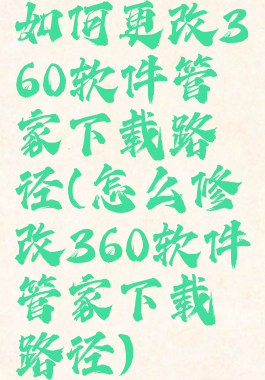 如何更改3
60软件管
家下载路
径(怎么修
改360软件
管家下载
路径)